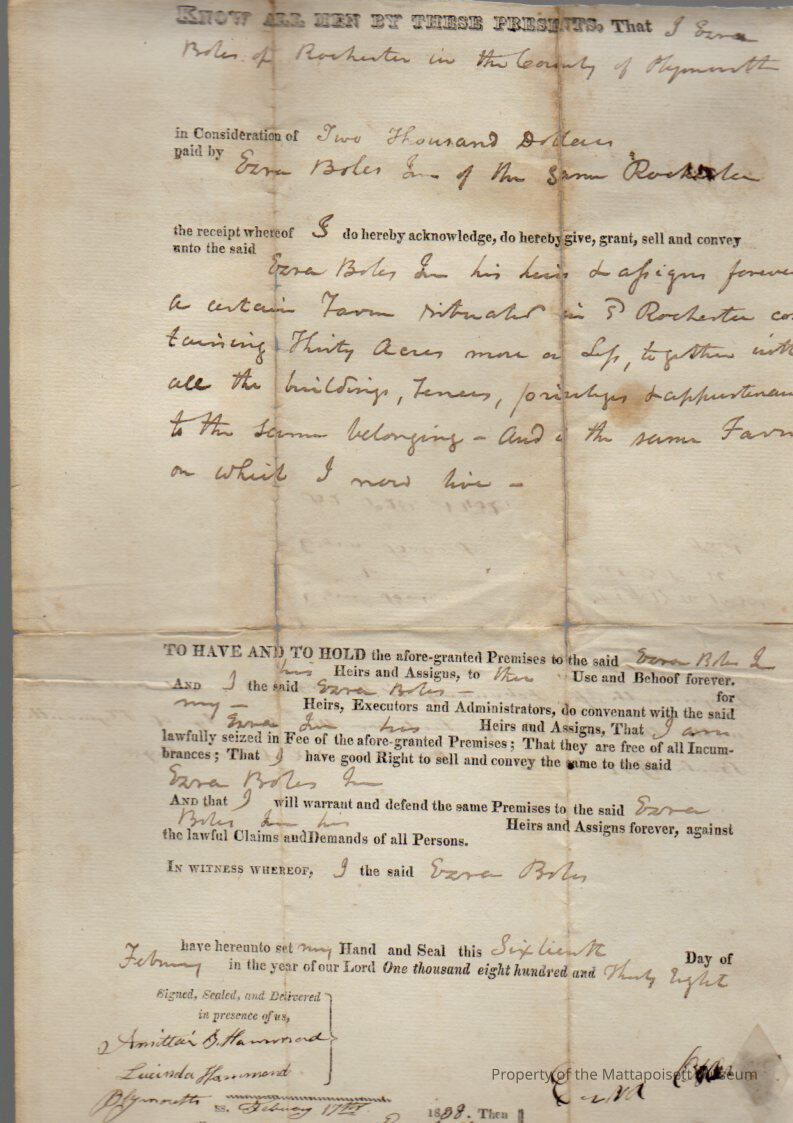 KNOW ALL MEN BY THESE PRESENTS, That I Ezra
Boles of Rochester in the County of Plymouth
in Consideration of Two Thousand Dollars
paid by Ezra Boles Jun of the same Rochester
the receipt whereof I do hereby acknowledge, do hereby give, grant, sell and convey
unto the said
Ezra Boles Jun his heirs & assigns forever
a certain Farm situated in Rochester con
taining Thirty Acres more or Less, together with
all the buildings, fences, privileges & appurtenan
to the same belonging - And the same Farm
on which I now live -
TO HAVE AND TO HOLD the afore-granted Premises to the said Ezra Boles Jn
his Heirs and Assigns, to their Use and Behoof forever.
AND I the said Ezra Boles - for
my - Heirs, Executors and Administrators, do convenant with the said
Ezra Jun his Heirs and Assigns, That I am
lawfully seized in Fee of the afore-granted Premises; That they are free of all Incum-
brances; That I have good Right to sell and convey the same to the said
Ezra Boles Jn
AND that I will warrant and defend the same Premises to the said Ezra
Boles Jun his Heirs and Assigns forever, against
the lawful Claims and Demands of all Persons.
IN WITNESS WHEREOF, I the said Ezra Boles
have hereunto set my Hand and Seal this Sixteenth Day of
February in the year of our Lord One thousand eight hundred and Thirty Eight
Signed, Sealed, and Delivered
in presence of us,
Amittai B. Hammond
Lucinda Hammond
Ezra Boles
Property of the Mattapoisett Museum
Plymouth ss. February 17th 1838. Then